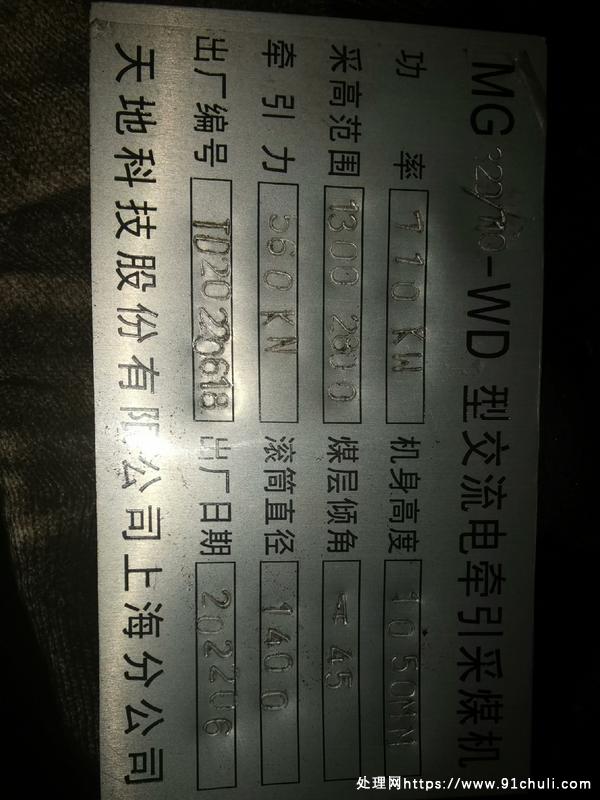 MG320/710-WD 型交流电牵引采煤机
功率 710KW 机身高度 1050MM
采高范围 1300 2800 煤层倾角 <45
牵引力 560KN 滚筒直径 1400
出厂编号 出厂日期 202206
天地科技股份有限公司上海分公司
处理网https://www.91chuli.com